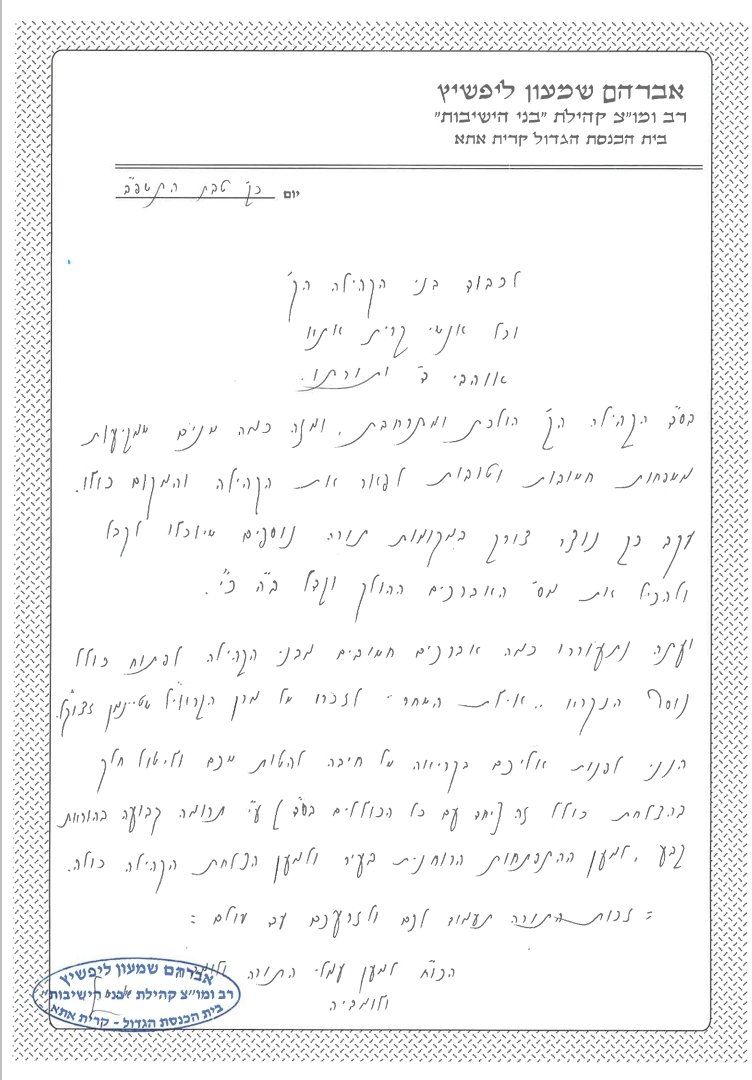 אברהם שמעון ליפשיץ
רב ומו"צ קהילת "בני הישיבות"
בית הכנסת הגדול קרית אתא
יום כ"ו טבת התשפ"ב
לכבוד בני הקהילה הק'
וכל אנשי קרית אתא
אוהבי ד' ותורתו.
בס"ד הקהילה הק' הולכת ומתרחבת, ומזה כמה שנים שמגיעות
משפחות חשובות וטובות לפאר את הקהילה והמקום כולו.
עקב כך נוצר צורך במקומות תורה נוספים שיוכלו לקבל
ולהכיל את מס' האברכים ההולך וגדל ב"ה כ"י.
ועתה נתעוררו כמה אברכים חשובים מבני הקהילה לפתוח כולל
נוסף הנקרא "אילת השחר" לזכרו של מרן הגראי"ל שטיינמן זצוק"ל.
הנני לפנות אליכם בקריאה של חיבה להטות שכם וליטול חלק
בהצלחת כולל זה [יחד עם כל הכוללים בס"ד] ע"י תרומה קבועה בהוראת
קבע, למען ההתפתחות הרוחנית בעיר ולמען הצלחת הקהילה כולה.
= זכות התורה תעמוד לכם ולזרעכם עד עולם =
הכו"ח למען עמלי התורה
אברהם שמעון ליפשיץ
רב ומו"צ קהילת "בני הישיבות"
בית הכנסת הגדול - קרית אתא